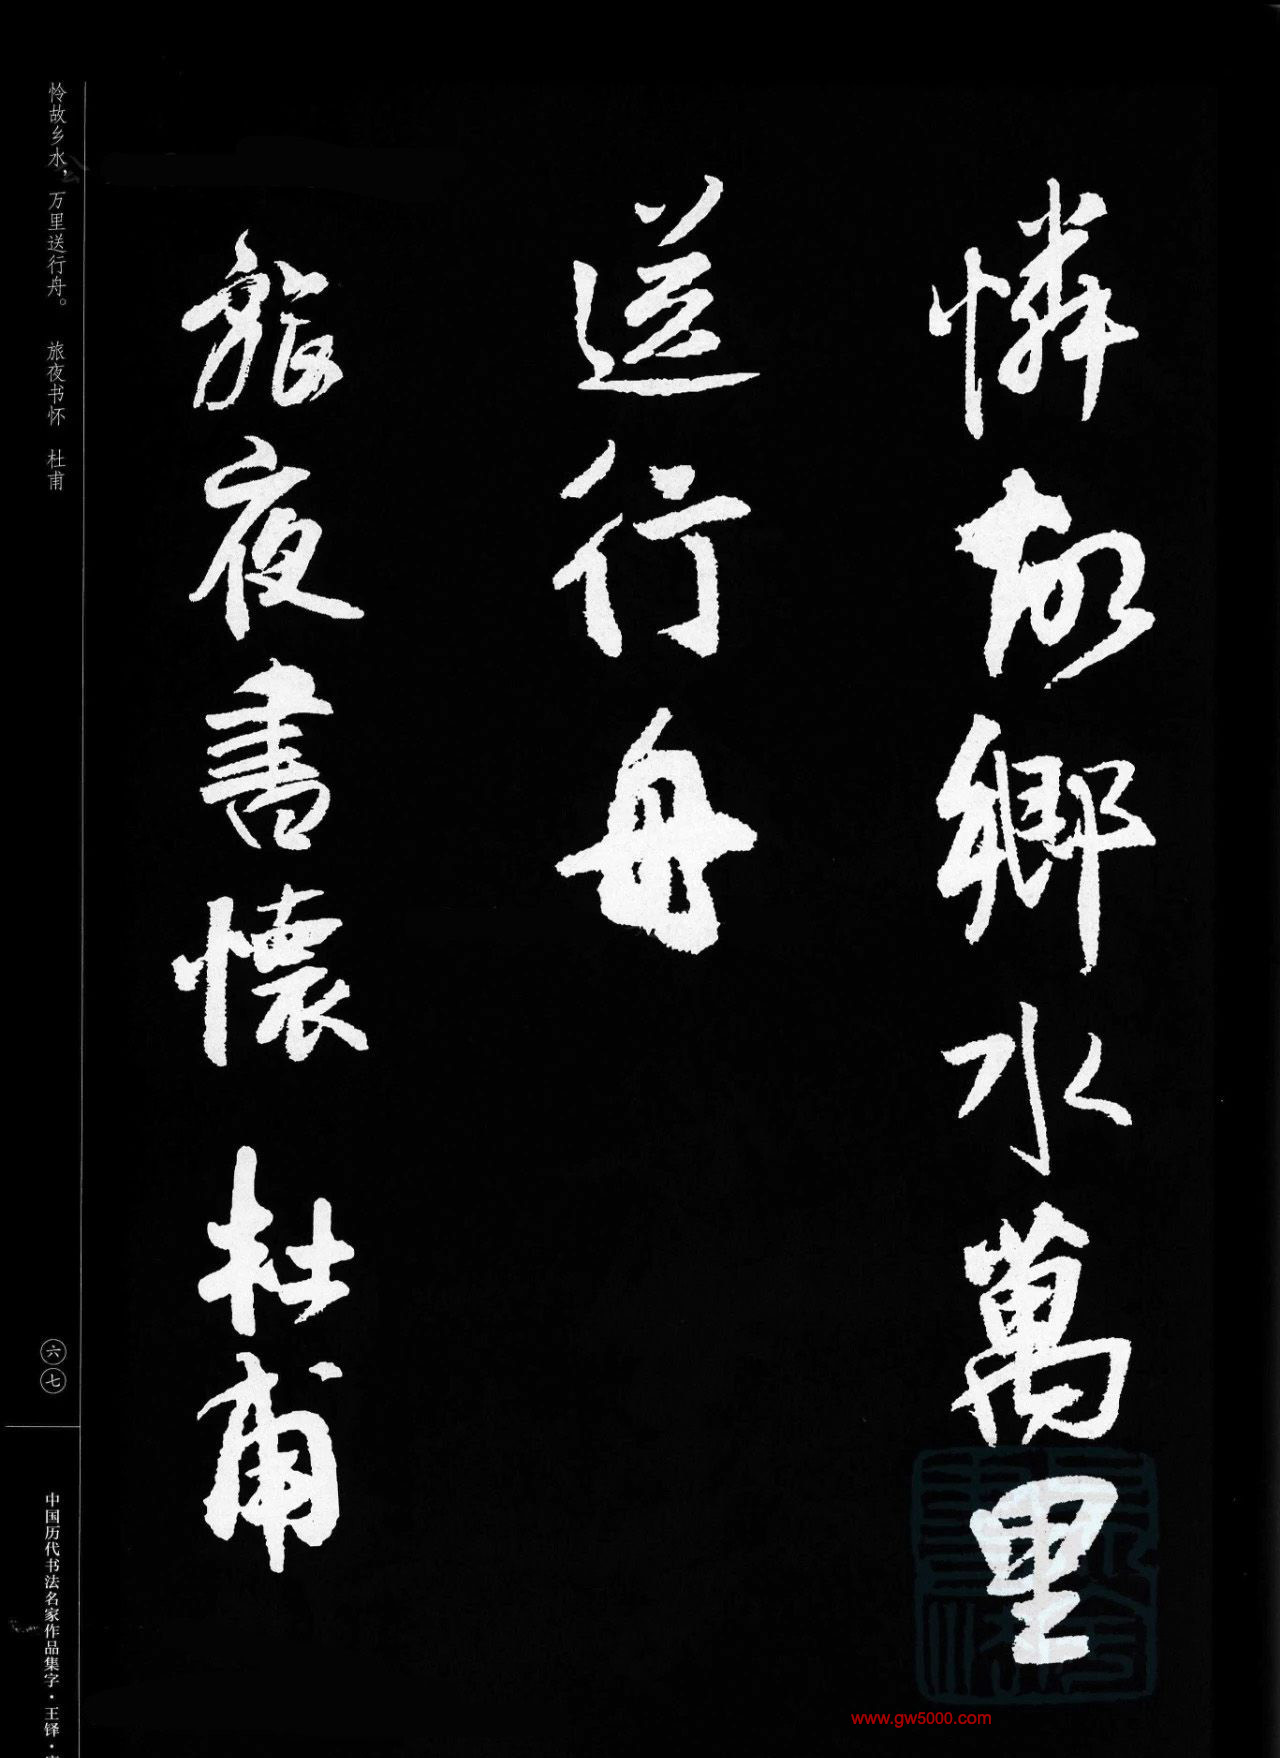 憐故鄉水萬里
送行舟
旅夜書懷 杜甫
怜故乡水，万里送行舟。 旅夜书怀 杜甫
六七
中国历代书法名家作品集字·王铎·
www.gw5000.com